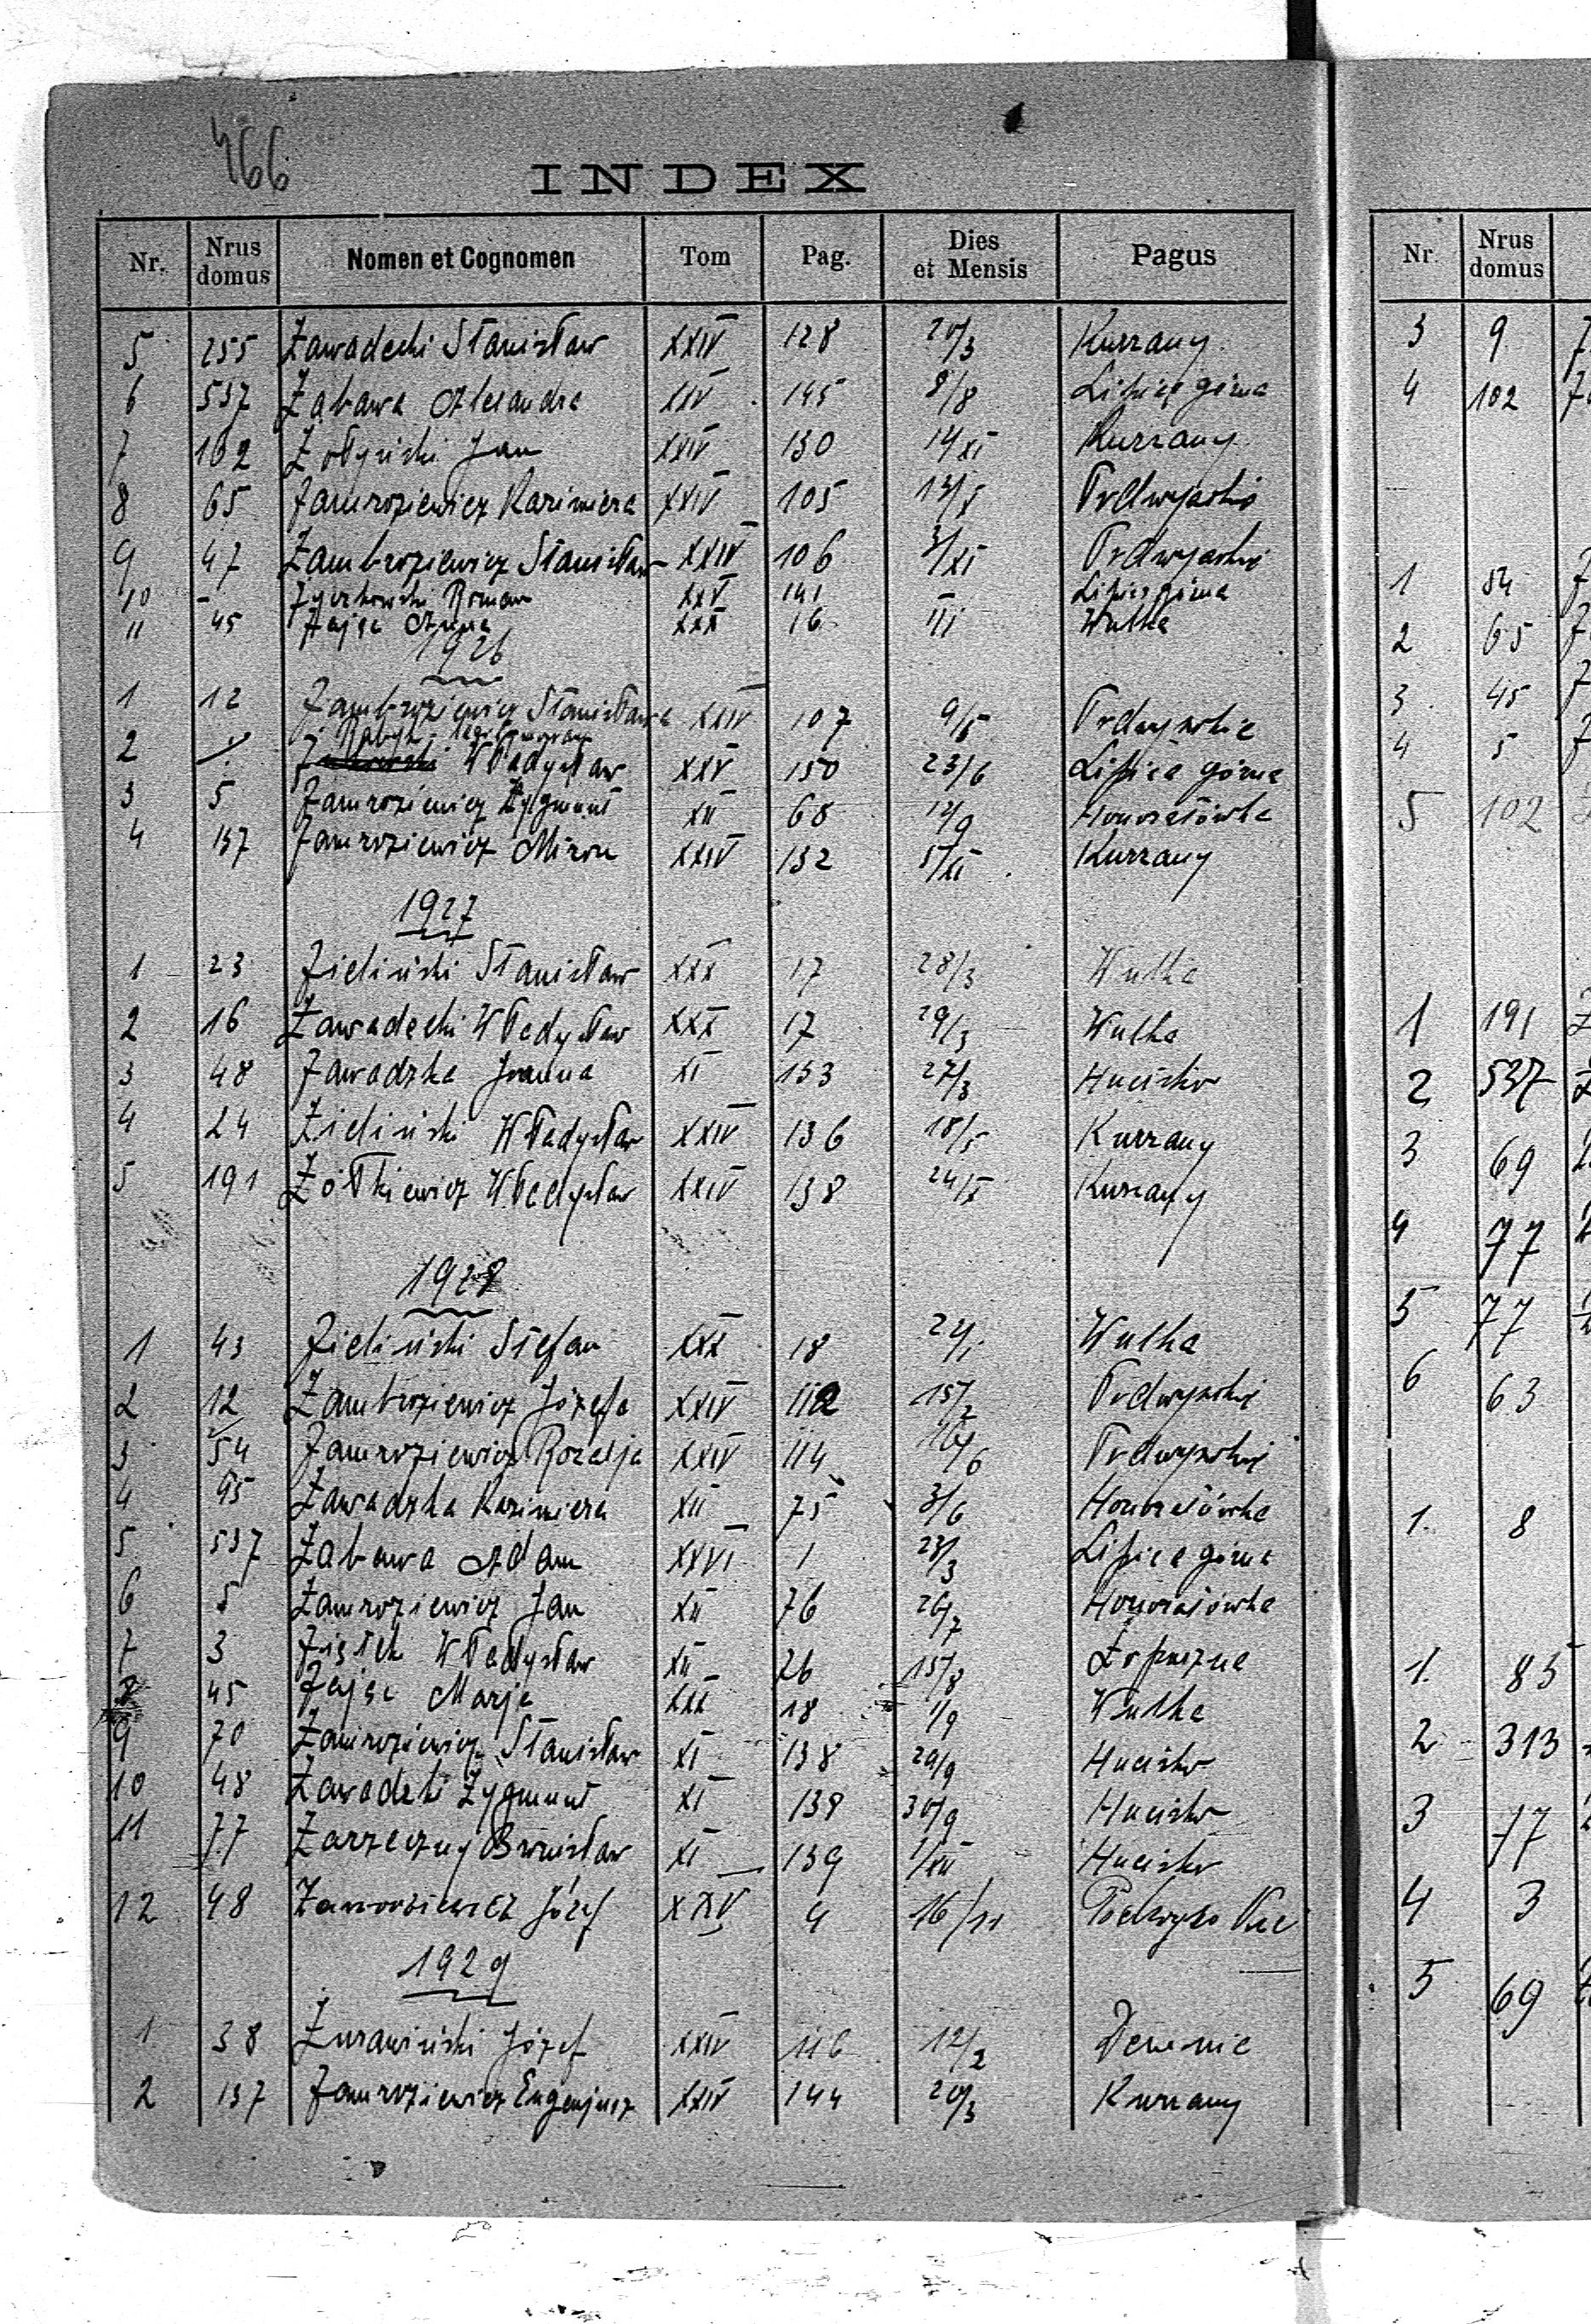 466
INDEX
Nr. Nrus domus Nomen et Cognomen Tom Pag. Dies et Mensis Pagus
5 255 Zawadecki Stanisław XXIV 128 20/3 Kurzany
6 537 Zabawa XXV 145 8/8 Lipica górna
7 102 Jan XXIV 130 14/XI Kurzany
8 65 Zamroziewicz Kazimiera XXIV 105 13/5
9 47 Zambroziewicz Stanisław XXIV 106 3/XI
10 - Życzkowski Roman XXV 141 - Lipica górna
11 45 Zając Anna XXX 16 Wulka
1926
1 12 Zambroziewicz Stanisława XXIV 107 9/5
2 Władysław XXV 150 23/6 Lipica górna
3 5 Zamroziewicz Zygmunt XII 68 12/9 Honoratówka
4 137 Zamroziewicz Miron XXIV 132 5/XI Kurzany
1927
1 23 Zieliński Stanisław XXX 17 28/3 Wulka
2 16 Zawadecki Władysław XXX 17 29/3 Wulka
3 48 Zawadzka Joanna XI 133 27/3 Hucisko
4 24 Zieliński Władysław XXIV 136 18/5 Kurzany
5 191 Żółkiewicz Władysław XXIV 138 24/X Kurzany
1928
1 43 Zieliński Stefan XXX 18 Wulka
2 12 Zambroziewicz Józefa XXIV 112 15/2
3 54 Zamroziewicz Rozalja XXIV 114 16/6
4 95 Zawadzka Kazimiera XII 75 3/6 Honoratówka
5 537 Zabawa Adam XXVI 1 23/3 Lipica górna
6 5 Zamroziewicz Jan XII 76 26/7 Honoratówka
7 3 Władysław XII 26 15/8 Łopuszna
8 45 Zając Marja XXX 18 1/9 Wulka
9 70 Zamroziewicz Stanisław XI 138 29/9 Hucisko
10 48 Zawadeki Zygmunt XI 139 30/9 Hucisko
11 77 Zarzeczny Bronisław XI 139 1/XII Hucisko
12 48 Zamroziewicz Józef XXV 4 16/11
1929
1 38 Żurawiński Józef XXIV 116 12/2
2 137 Zamroziewicz Eugenjusz XXIV 144 20/3 Kurzany
Nr. Nrus domus
3 9
4 102
1 54
2 65
3 45
4 5
5 102
1 191
2 537
3 69
4 77
5 77
6 63
1. 8
1. 85
2 313
3 77
4 3
5 69